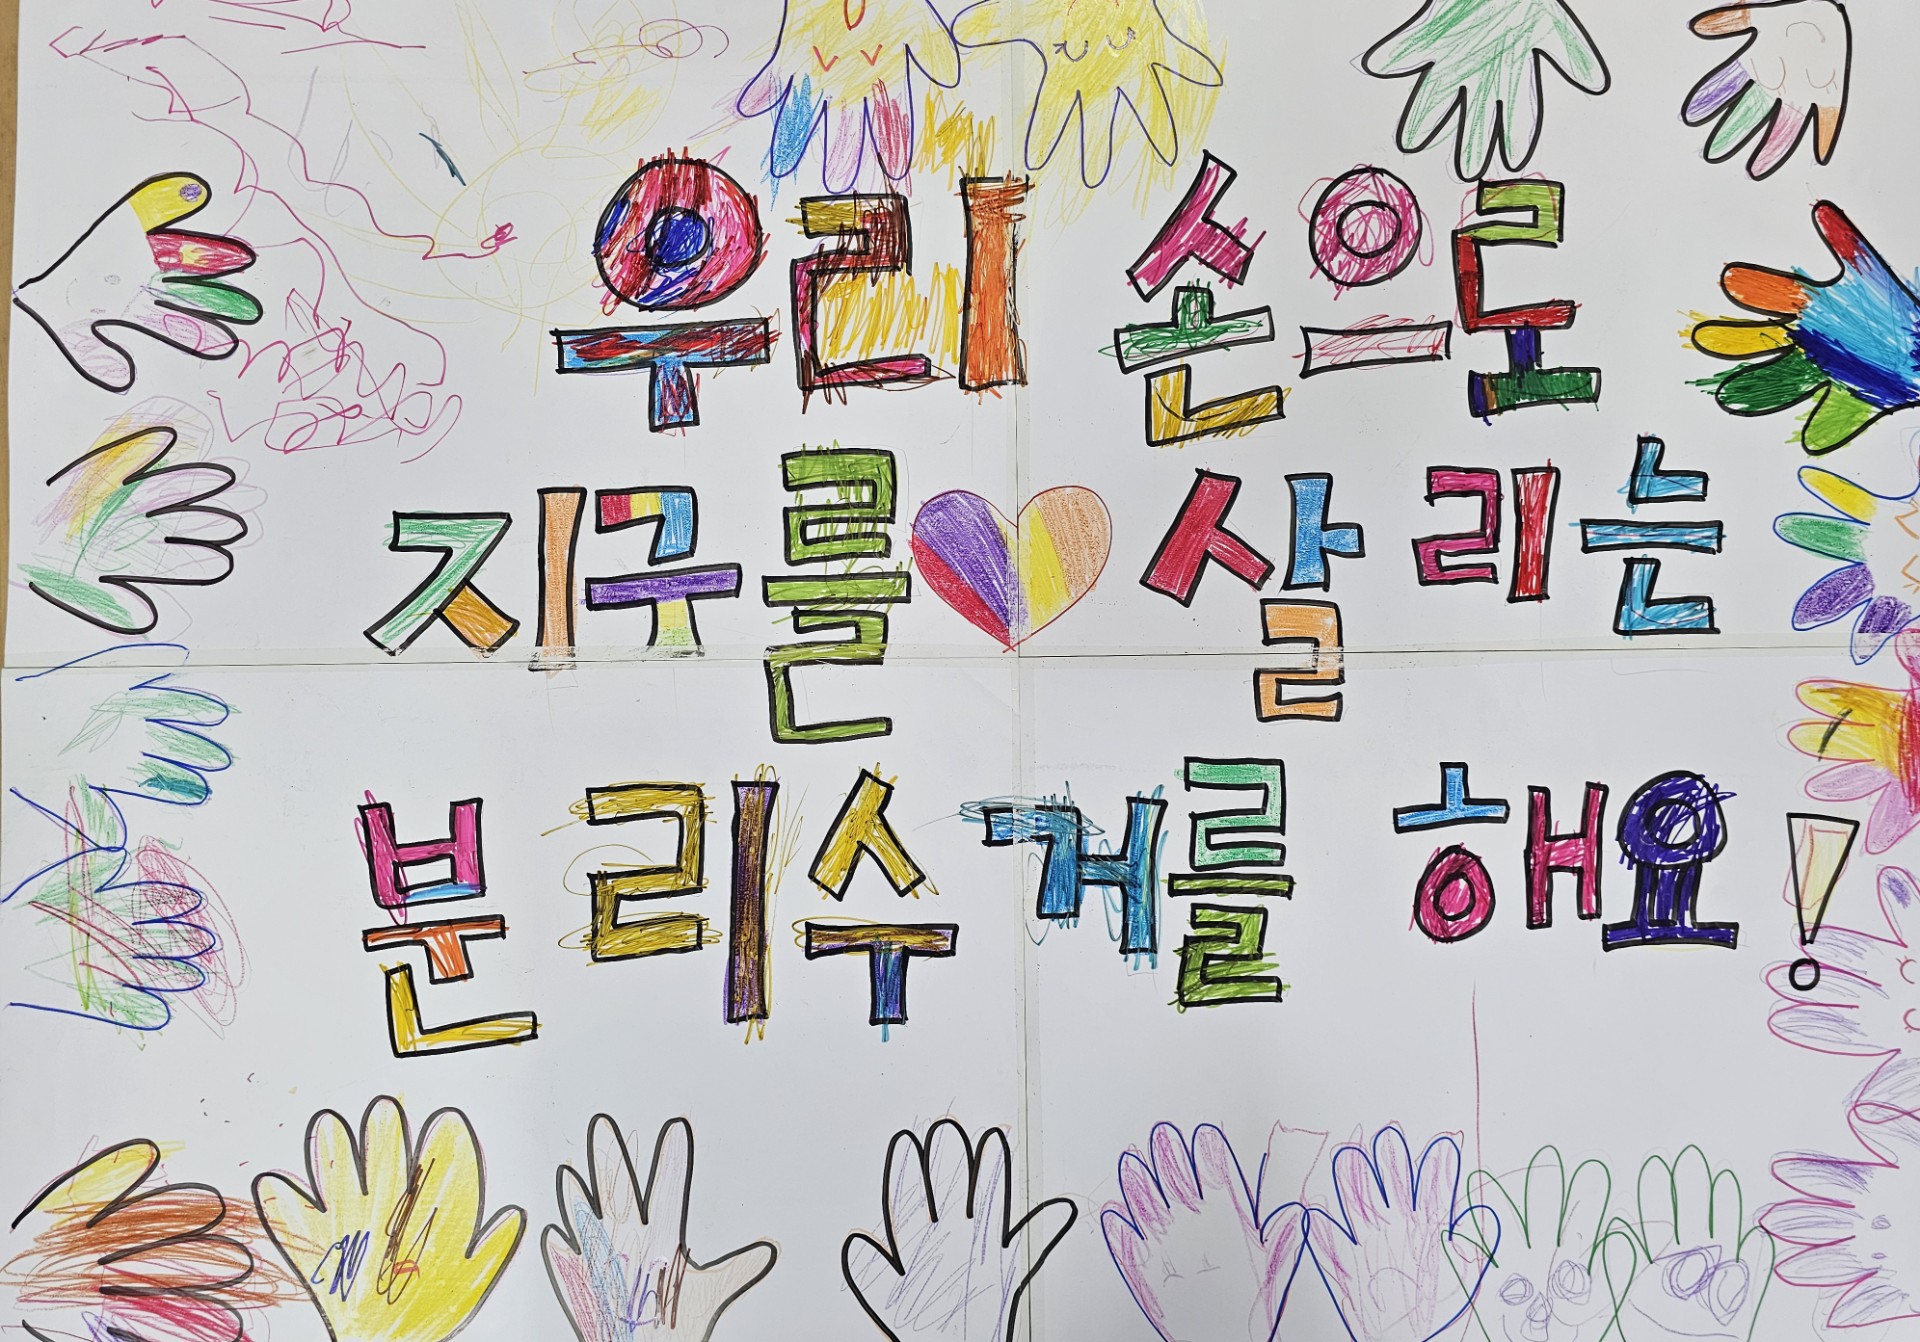 우리 손으로
지구를 살리는
분리수거를 해요!